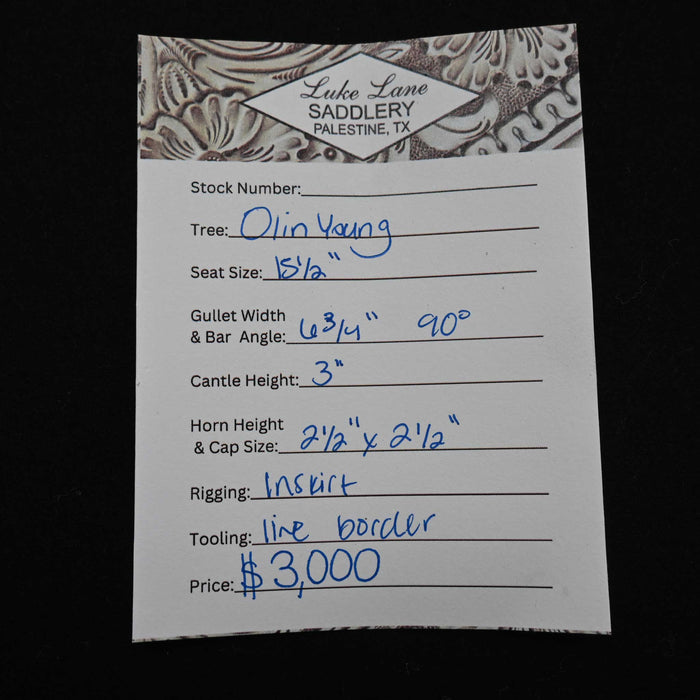 Luke Lane
SADDLERY
PALESTINE, TX
Stock Number:
Tree: Olin Young
Seat Size: 15 1/2"
Gullet Width
& Bar Angle: 6 3/4" 90°
Cantle Height: 3"
Horn Height
& Cap Size: 2 1/2" x 2 1/2"
Rigging: Inskirt
Tooling: line border
Price: $3,000